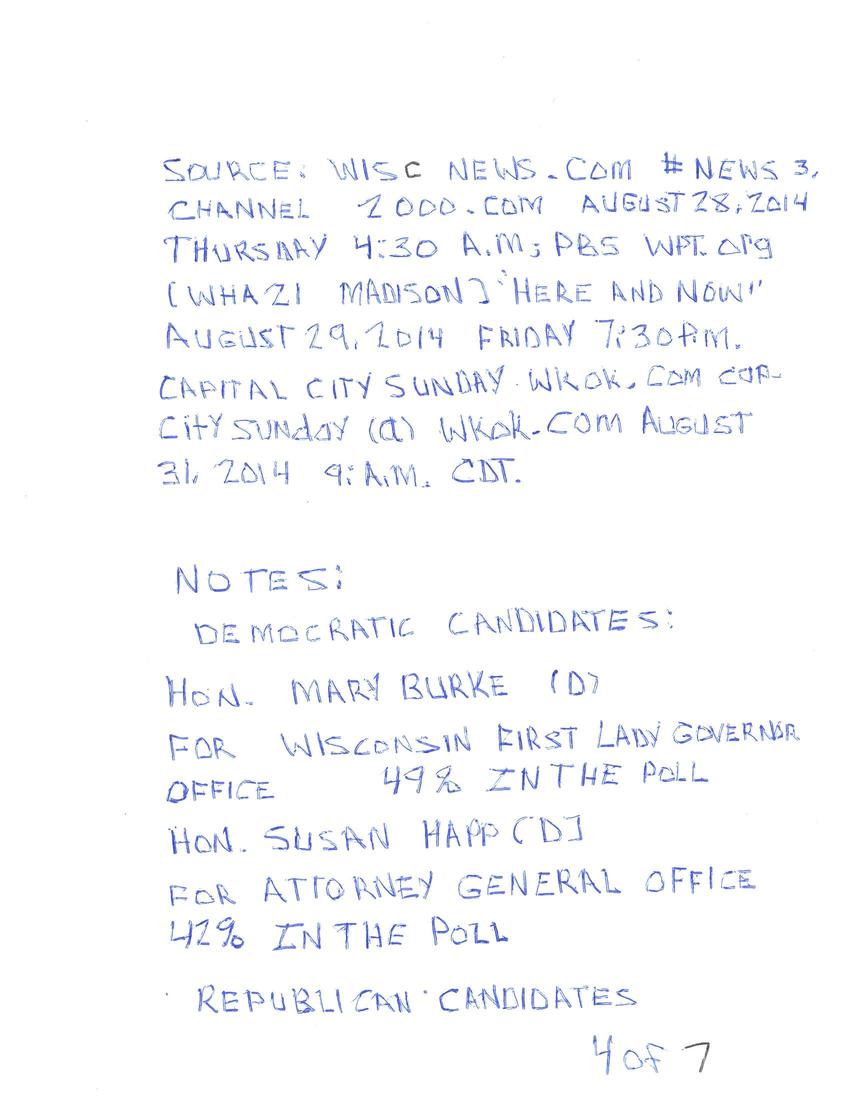 SOURCE: WISC NEWS.COM # NEWS 3,
CHANNEL 2000.COM AUGUST 28, 2014
THURSDAY 4:30 A.M; PBS WPT.org
[WHA 21 MADISON] "HERE AND NOW"
AUGUST 29, 2014 FRIDAY 7:30 P.M.
CAPITAL CITY SUNDAY. WKOK. COM CAP-
CITY SUNdAY (a) WKOK.COM AUGUST
31, 2014 9: A.M. CDT.
NOTES:
DEMOCRATIC CANDIDATES:
HON. MARY BURKE (D)
FOR WISCONSIN FIRST LADY GOVERNOR
OFFICE 49% IN THE POLL
HON. SUSAN HAPP [D]
FOR ATTORNEY GENERAL OFFICE
42% IN THE POLL
REPUBLICAN CANDIDATES
4 of 7